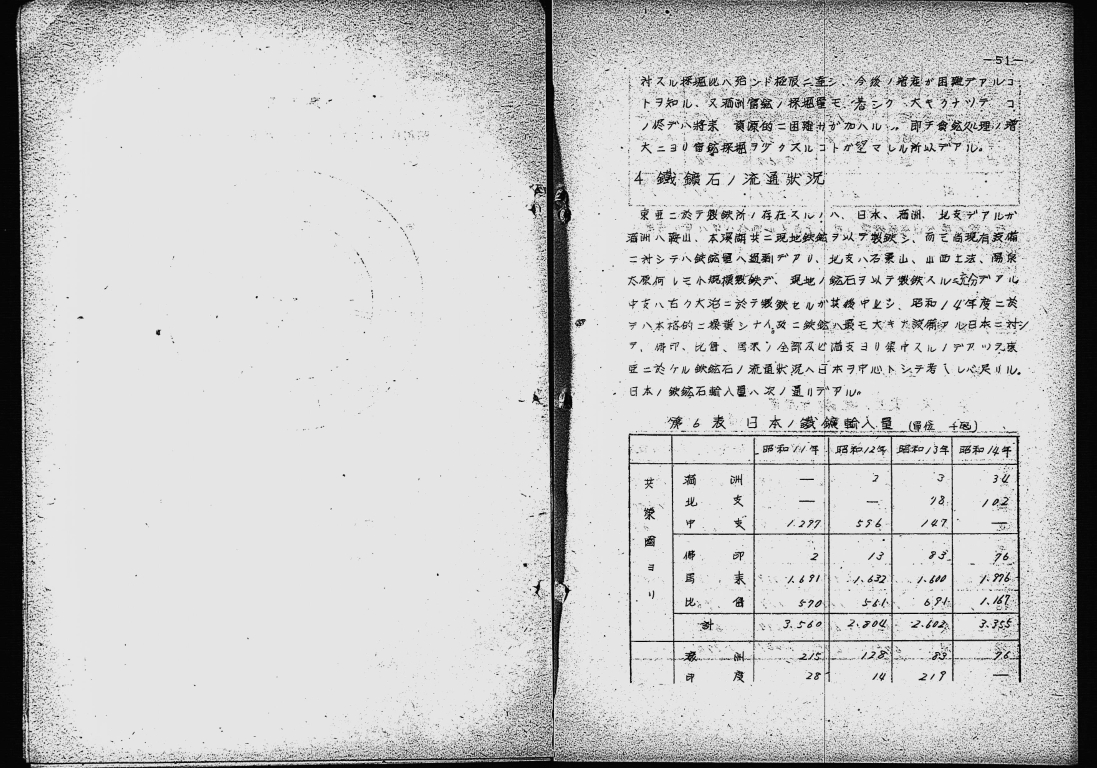 —51—
対スル採掘比ハ殆ンド極限ニ至シ、今後ノ増産が困難デアルコ
トヲ知ル、又満洲富鉱ノ採掘量モ、著シク大キクナツテ コ
ノ終デハ将来 資源的ニ困難サガ加ハル 。即チ貧鉱処理ノ増
大ニヨリ富鉱採掘ヲ スルコトガ望マレル所以デアル。
4 鐵鑛石ノ流通狀況
東亜ニ於テ製鉄所ノ存在スルノハ、日本、満洲、北支デアルガ
満洲ハ鞍山、本溪湖共ニ現地鉄鉱ヲ以テ製鉄シ、而モ当現有設備
ニ対シテハ鉄鉱量ハ過剰デアリ、北支ハ石景山、山西土法、陽泉
太原何レモ小規模製鉄デ、現地ノ鉱石ヲ以テ製鉄スルニ充分デアル
中支ハ古ク大冶ニ於テ製鉄セルガ其後中止シ、昭和14年度ニ於
ヲハ本格的ニ操業シナイ。故ニ鉄鉱ハ最モ大キナ設備アル日本ニ対シ
テ、佛印、比島、馬来ノ全部及ビ満支ヨリ集中スルノデアツテ東
亜ニ於ケル鉄鉱石ノ流通狀況ハ日本ヲ中心トシテ考ヘレバ足リル。
日本ノ鉄鉱石輸入量ハ次ノ通リデアル。
第6表 日本ノ鐵鑛輸入量 (單位 千瓲)
昭和11年 昭和12年 昭和13年 昭和14年
共榮圏ヨリ
満洲 — 2 3 34
北支 — — 78 102
中支 1.297 596 147 —
佛印 2 13 83 76
馬来 1.691 1.632 1.600 1.976
比島 570 561 691 1.167
計 3.560 2.804 2.602 3.355
濠洲 215 128 83 76
印度 28 14 219 —